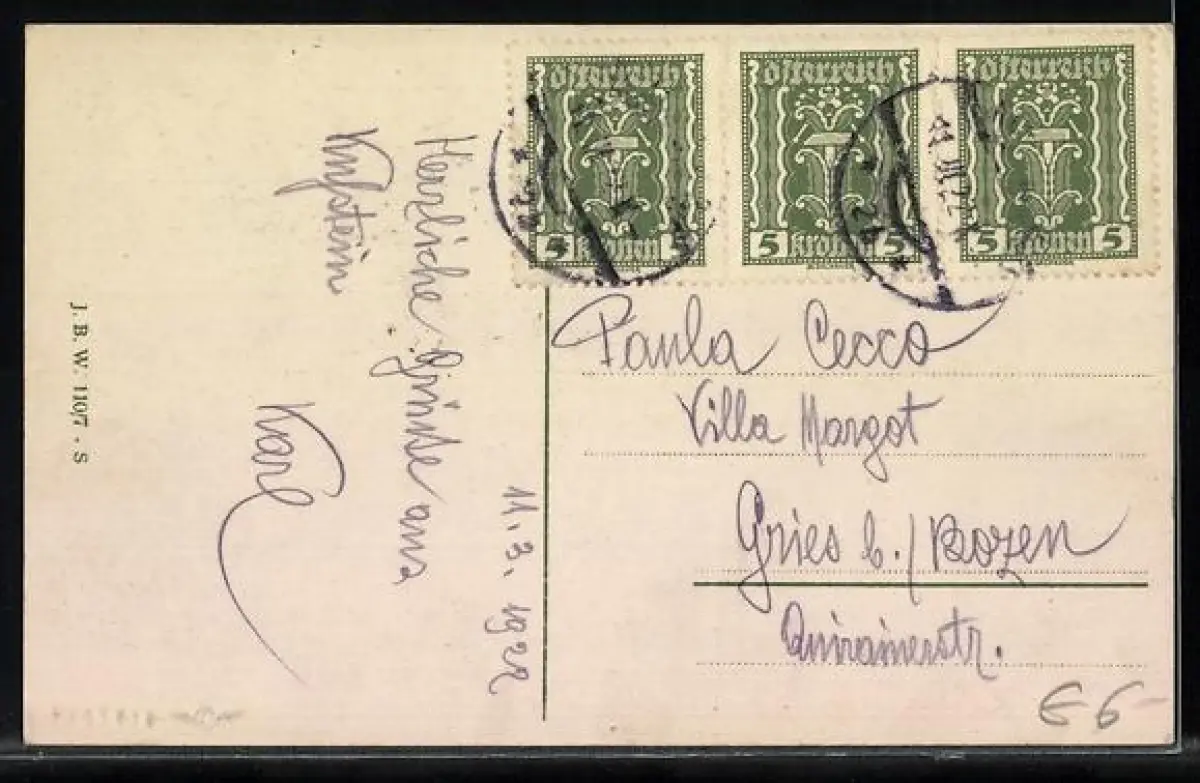 Österreich
5 Kronen 5
Österreich
5 Kronen 5
Österreich
5 Kronen 5
11. 3. 1922
Herrliche Grüße aus
Kufstein
Karl
Paula Cecco
Villa Margot
Gries b./Bozen
Quirainerstr.
J. B. W. 1107 . S
€ 6-